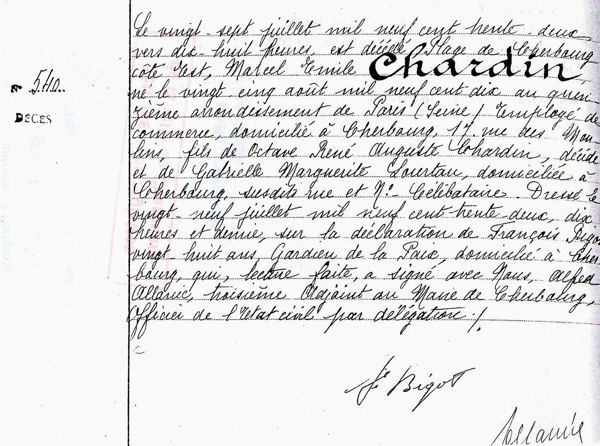 Le vingt-sept juillet mil neuf cent trente-deux
vers dix-huit heures, est décédé Plage de Cherbourg
côté Est, Marcel Emile Chardin
né le vingt-cinq août mil neuf cent dix au quin-
zième arrondissement de Paris (Seine) Employé de
commerce, domicilié à Cherbourg, 17 rue des Mou-
lins, fils de Octave René Auguste Chardin, décédé
et de Gabrielle Marguerite domiciliée à
Cherbourg, susdits rue et No. Célibataire. Dressé le
vingt-neuf juillet mil neuf cent trente-deux, dix
heures et demie, sur la déclaration de François Bigot
vingt-huit ans, Gardien de la Paix, domicilié à Cher-
bourg, qui, lecture faite, a signé avec Nous, Alfred
Allanic, troisième Adjoint au Maire de Cherbourg,
Officier de l'Etat civil par délégation ./.
No 540.
DÉCÈS
Fs Bigot